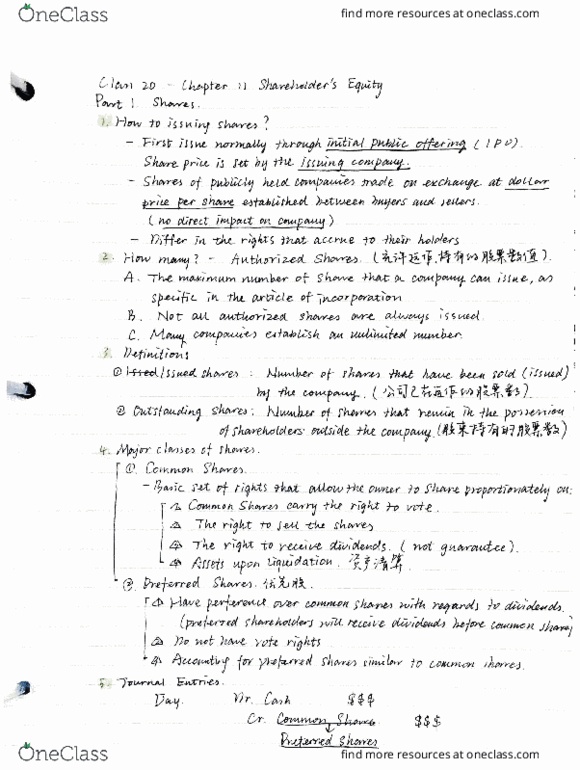 OneClass
find more resources at oneclass.com
Class 20 - Chapter 11 Shareholder's Equity
Part 1. Shares.
1. How to issuing shares?
- First issue normally through initial public offering (IPO).
Share price is set by the issuing company.
- Shares of publicly held companies trade on exchange at dollar
price per share established between buyers and sellers.
(no direct impact on company)
- Differ in the rights that accrue to their holders
2. How many? - Authorized Shares.
A. The maximum number of share that a company can issue, as
specific in the article of incorporation
B. Not all authorized shares are always issued.
C. Many companies establish an unlimited number.
3. Definitions
① Issued shares: Number of shares that have been sold (issued)
by the company.
② Outstanding shares: Number of shares that remain in the possession
of shareholders outside the company (股东持有的股票数)
4. Major classes of shares.
①. Common Shares.
- Basic set of rights that allow the owner to share proportionately on:
Common Shares carry the right to vote.
The right to sell the shares
The right to receive dividends. (not guarantee).
Assets upon liquidation. 资产清算
② Preferred Shares. 优先股.
Have perference over common shares with regards to dividends.
(preferred shareholders will receive dividends before common share)
Do not have vote rights
Accounting for preferred shares similar to common shares.
5. Journal Entries.
Day. Dr. Cash $$$
Cr. Common Shares $$$
Preferred Shares
OneClass
find more resources at oneclass.com